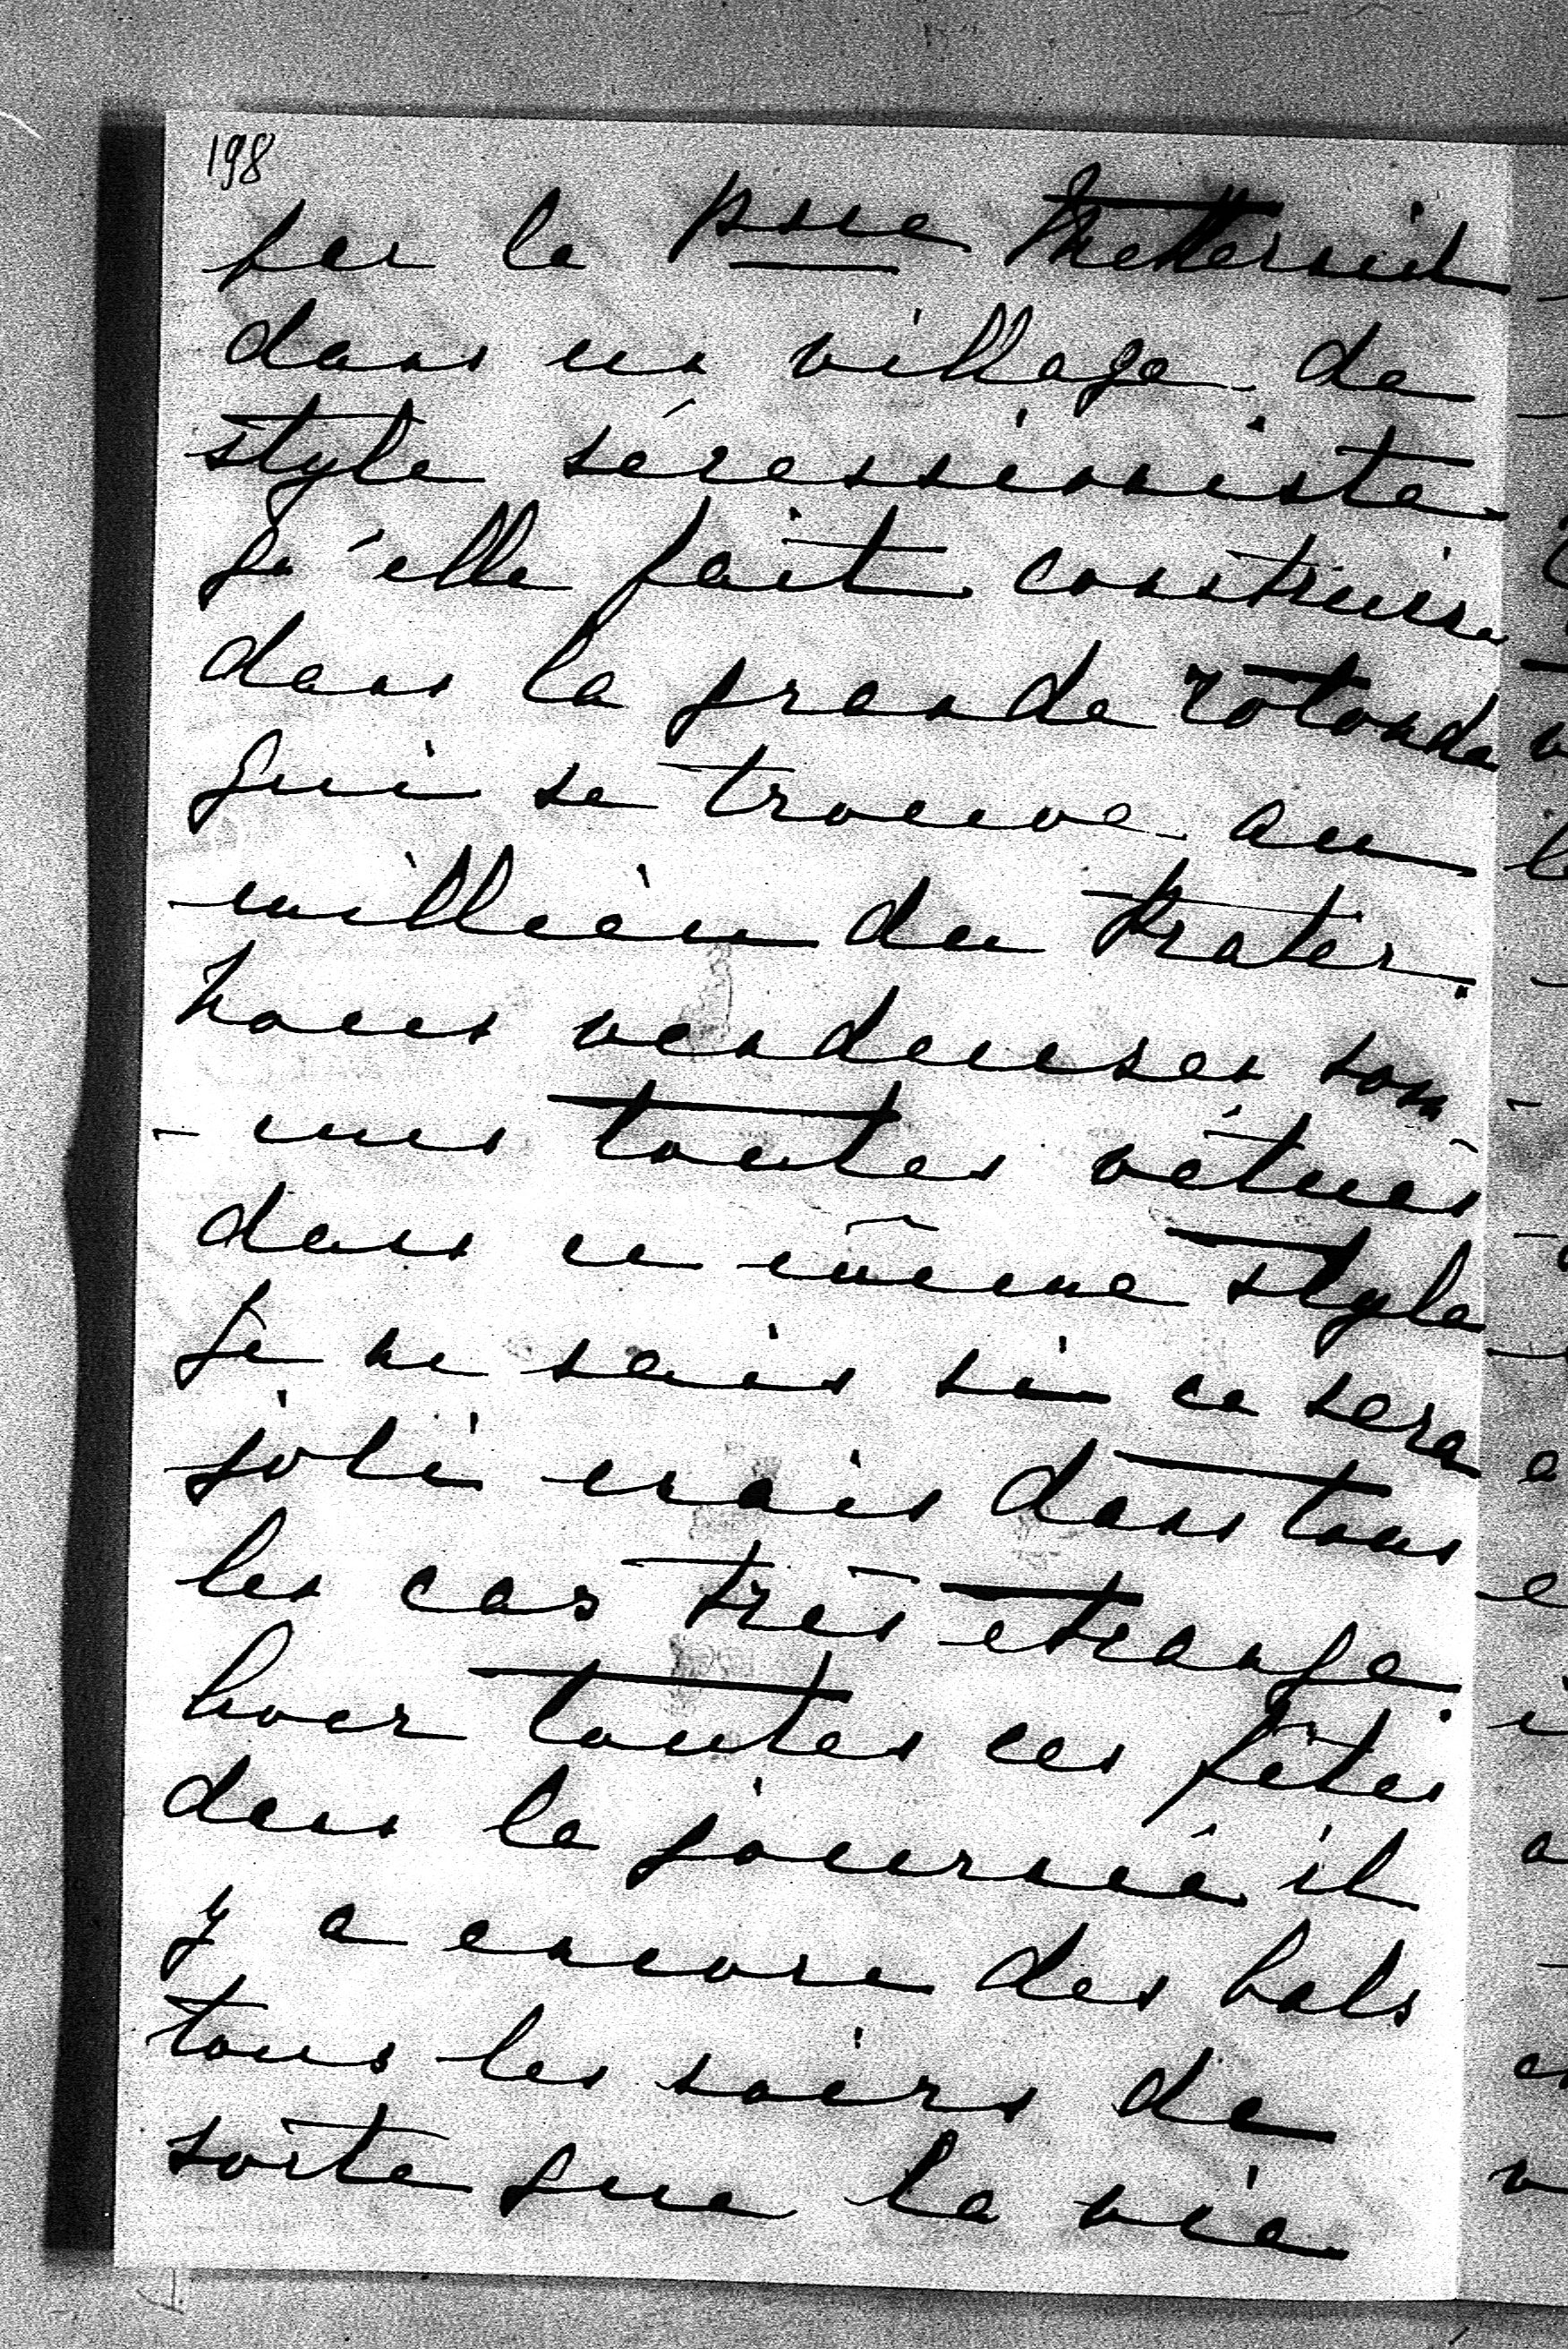 198
par la psse Metternich
dans un village de
style sécessioniste
qu'elle fait construire
dans la grande rotonde
qui se trouve au
millieu du Prater.
Nous vendeuses som-
- mes toutes vêtues
dans ce même style
Je ne sais si ce sera
joli mais dans tous
les cas très etrange
hoer toutes ces fêtes
dans la journée il
y a encore des bals
tous les soirs de
sorte que la vie